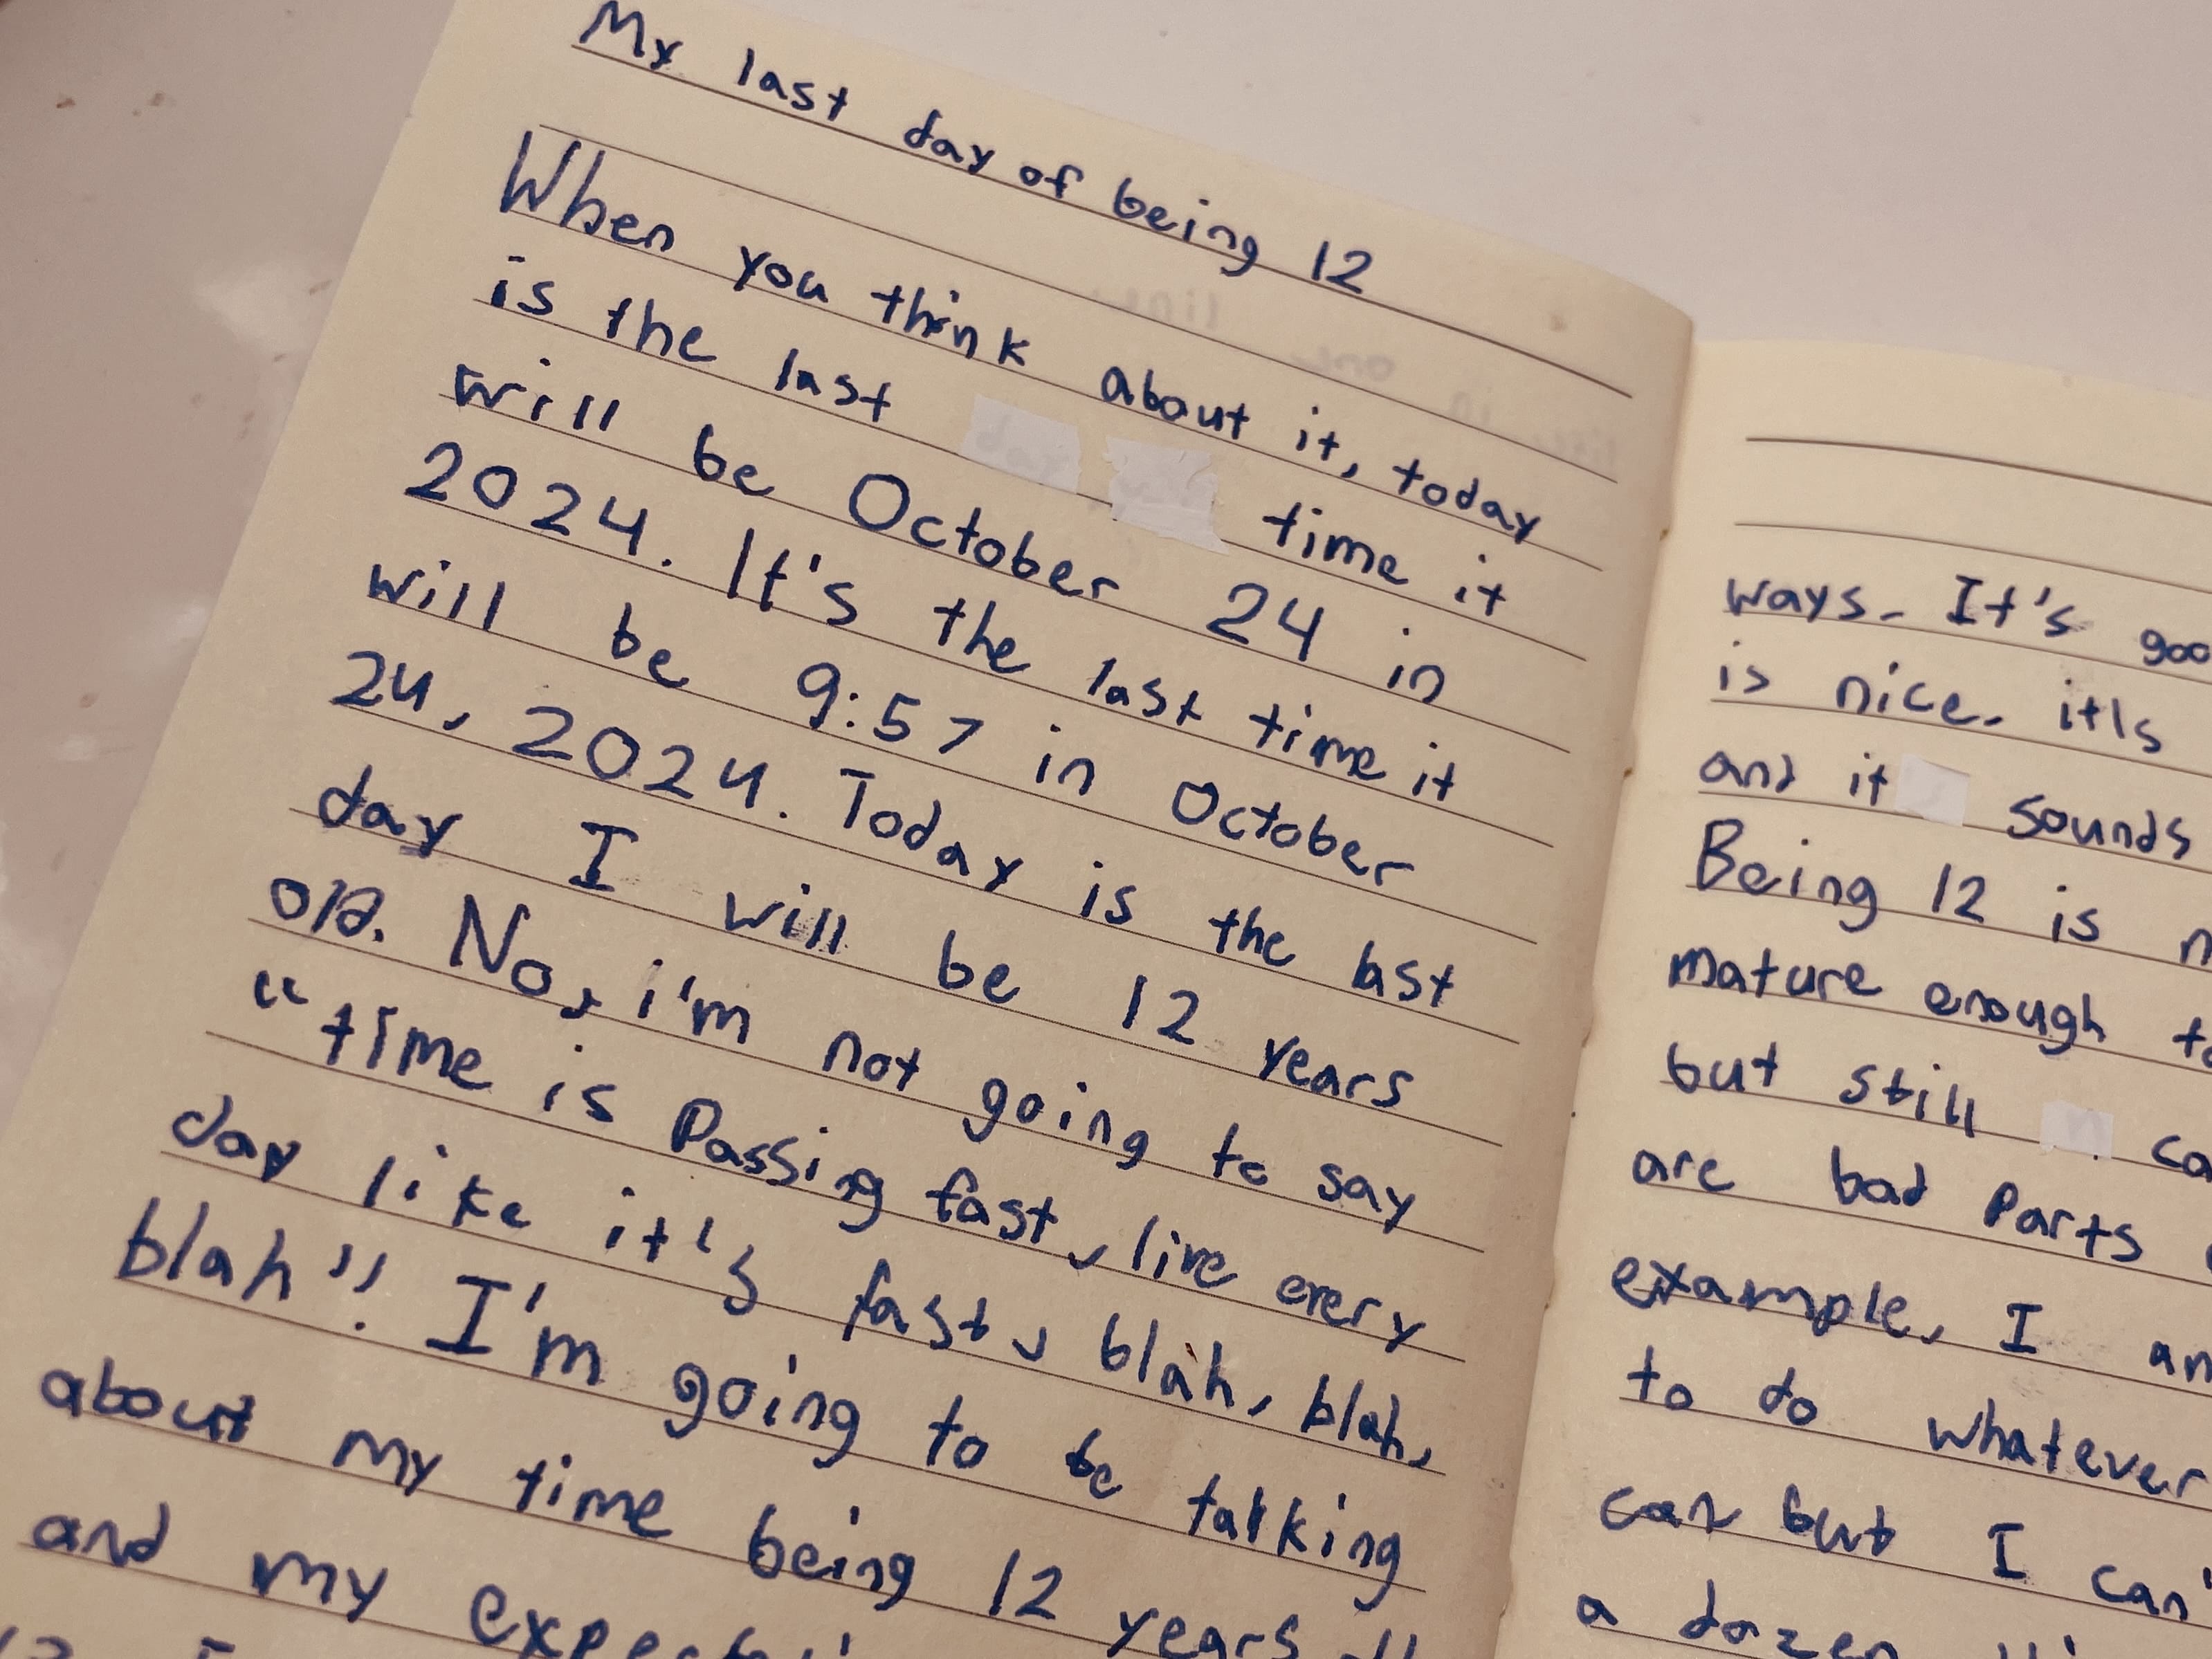 My last day of being 12
When you think about it, today
is the last time it
will be October 24 in
2024. It's the last time it
will be 9:57 in October
24, 2024. Today is the last
day I will be 12 years
old. No, i'm not going to say
"time is Passing fast, live every
day like it's fast, blah, blah,
blah". I'm going to be talking
about my time being 12 years
and my
ways. It's
is nice. it's
and it sounds
Being 12 is
mature enough
but still
are bad Parts
example, I
to do whatever
can but I can'
a dozen